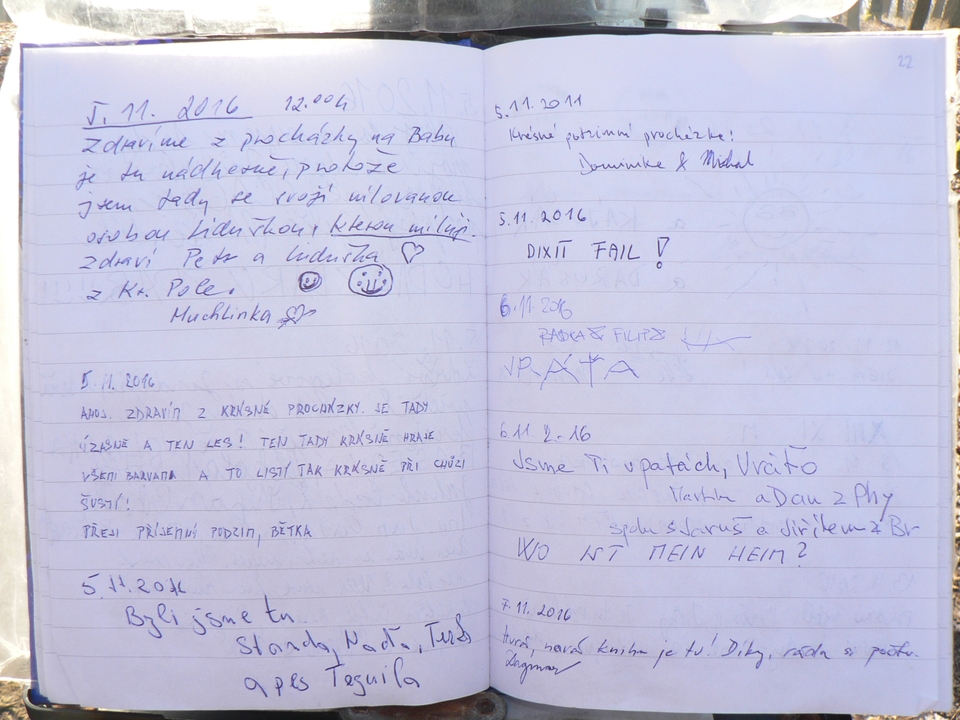 5. 11. 2016 12.00h
Zdravíme z procházky na Babu
je tu nádherně, protože
jsem tady se svojí milovanou
osobou Liduškou, kterou miluji.
Zdraví Petr a Liduška
z Kr. Pole.
Muchlinka
5. 11. 2016
AHOJ. ZDRAVÍM Z KRÁSNÉ PROCHÁZKY. JE TADY
ÚŽASNĚ A TEN LES! TEN TADY KRÁSNĚ HRAJE
VŠEMI BARVAMA A TO LISTÍ TAK KRÁSNĚ PŘI CHŮZI
ŠUSTÍ!
PŘEJI PŘÍJEMNÝ PODZIM, BĚTKA
5. 11. 2016
Byli jsme tu
Standa, Naďa,
a pes Teguila
22
5.11.2011
Krásná podzimní procházka!
Dominika & Michal
5.11.2016
DIXIT FAIL!
6.11.2016
RADKA & FILIP
VRÁŤA
6.11.2.16
Jsme Ti v patách, Vráťo
a Dan z Phy
spolu s Jaruš a Jiříkem z Br
WO IST MEIN HEIM?
7.11.2016
Hurá, nová kniha je tu! Díky, ráda si počtu.
Dagmar